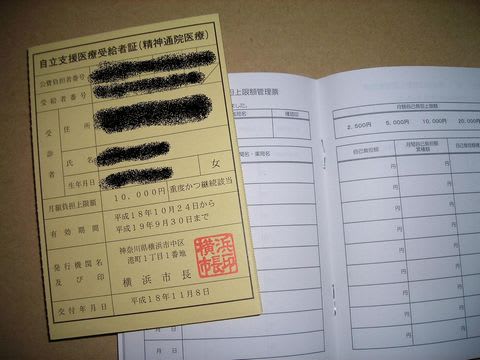 自立支援医療受給者証(精神通院医療)
公費負担者番号
受給者番号
受診者
住所
氏名
生年月日
女
月額負担上限額
10,000円 重度かつ継続該当
有効期間
平成18年10月24日から
平成19年9月30日まで
発行機関名及び印
神奈川県横浜市中区
港町1丁目1番地
横浜市長
横浜市長印
交付年月日
平成18年11月8日
担上限額管理票
ました。
関名
確認印
関名・薬局名
月額自己負担上限額
2,500円 5,000円 10,000円 20,000
自己負担額
月間自己負担額
累積額
自己負
円 円
円 円
円 円
円 円
円 円
円 円
円 円
月 日
月 日